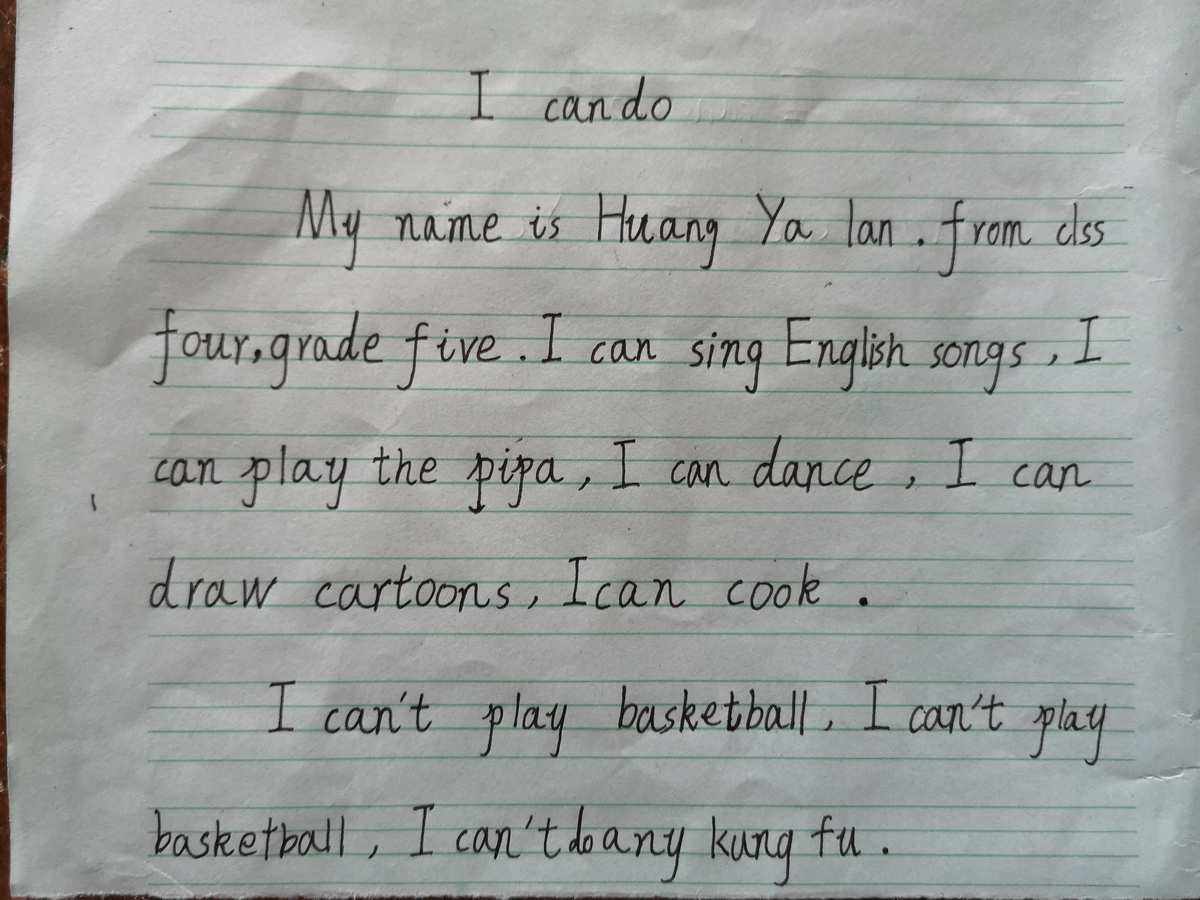 I can do
My name is Huang Ya lan . from clss
four, grade five . I can sing English songs , I
can play the pipa , I can dance , I can
draw cartoons , I can cook .
I can't play basketball , I can't play
basketball , I can't do any kung fu .